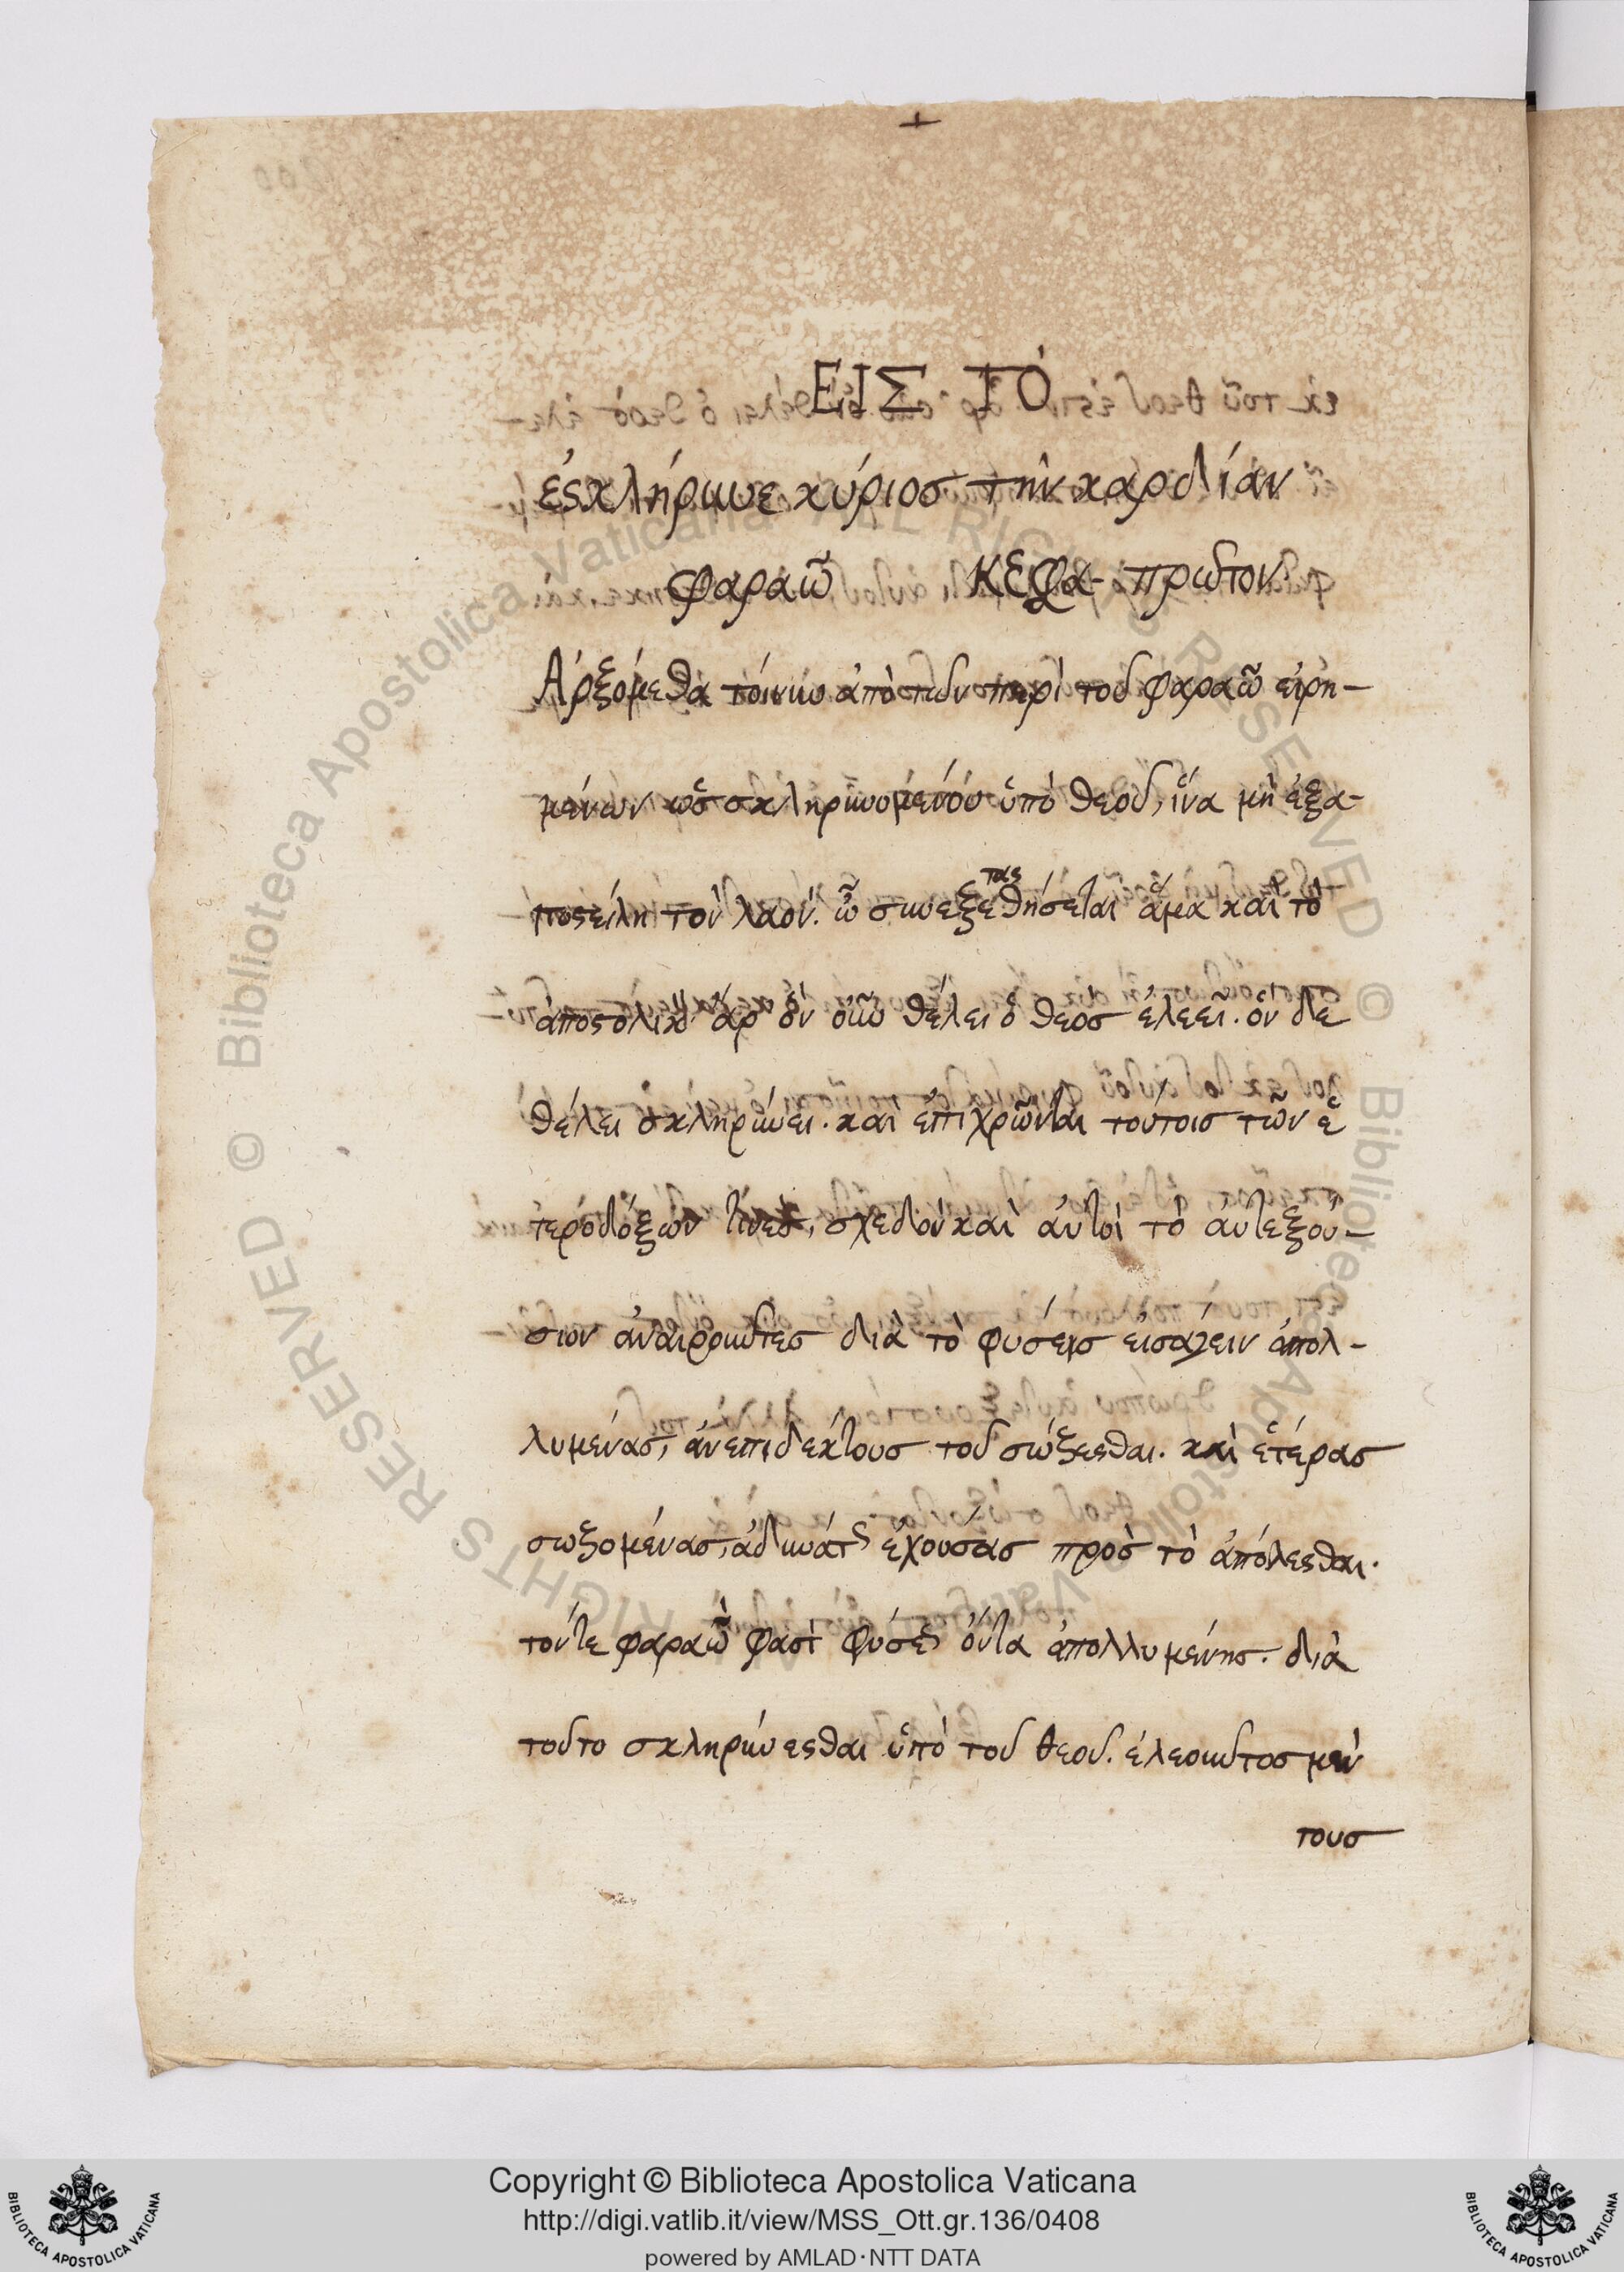 +
ΕΙΣ ΤῸ
ἐσκλήρυνε κύριος τὴν καρδίαν
φαραῶ Κεφα- πρωτον.
Ἀρξόμεθα τοίνυν ἀπὸ των περὶ τοῦ φαραῶ εἰρη-
μένων ὡς σκληρυνομένου ὑπὸ θεοῦ, ἵνα μὴ ἐξα-
ποστείλη τὸν λαόν. ᾧ συνεξεταςθήσεται ἅμα καὶ τὸ
ἀποστολικὸ ἄρ ὃν οὖν θέλει ὁ θεὸς ἐλεεῖ. ὃν δε
θέλει σκληρύνει. καὶ ἐπιχρῶνται τούτοις τῶν ἑ
τεροδόξων τινες, σχεδὸν καὶ αὐτοὶ τὸ αὐτεξού-
σιον ἀναιροῦντες διὰ τὸ φύσεις εἰσάγειν ἀπολ-
λυμένας, ἀνεπιδέκτους τοῦ σώζεσθαι. καὶ ἑτέρας
σωζομένας, ἀδυνάτως ἐχούσας πρὸς τὸ ἀπόλεσθαι.
τόν τε φαραὼ φασὶ φύσεως ὄντα ἀπολλυμένης. διὰ
τοῦτο σκληρύνεσθαι ὑπὸ τοῦ θεοῦ. ἐλεοῦντος μὲν
τους
© Biblioteca Apostolica Vaticana ALL RIGHTS RESERVED
Copyright © Biblioteca Apostolica Vaticana
http://digi.vatlib.it/view/MSS_Ott.gr.136/0408
powered by AMLAD·NTT DATA
BIBLIOTECA APOSTOLICA VATICANA
BIBLIOTECA APOSTOLICA VATICANA